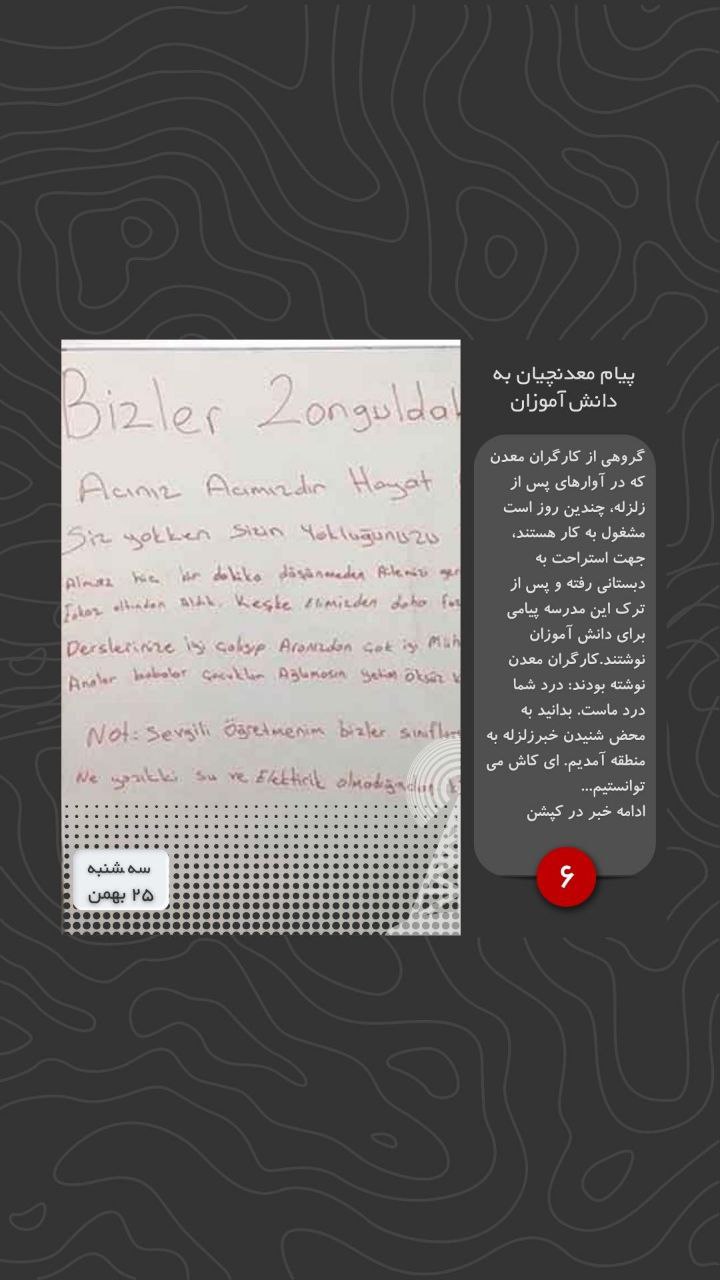 پیام معدنچیان به
دانش آموزان
گروهی از کارگران معدن
که در آوارهای پس از
زلزله، چندین روز است
مشغول به کار هستند،
جهت استراحت به
دبستانی رفته و پس از
ترک این مدرسه پیامی
برای دانش آموزان
نوشتند.کارگران معدن
نوشته بودند: درد شما
درد ماست. بدانید به
محض شنیدن خبرزلزله به
منطقه آمدیم. ای کاش می
توانستیم...
ادامه خبر در کپشن
۶
Bizler Zongulda
Acınız Acımızdır Hayat
Siz yokken sizin Yokluğunuzu
bir dakika düşünmeden Ailemizi
altından Aldık. Keşke Elimizden daha
Derslerinize iyi çalışıp Aranızdan çok iyi Müh
Analar babalar çocuklar Ağlamasın yetim öksüz
Not: Sevgili Öğretmenim bizler sınıfları
Ne yazıkki su ve Elektirik olmadığından
سه شنبه
۲۵ بهمن